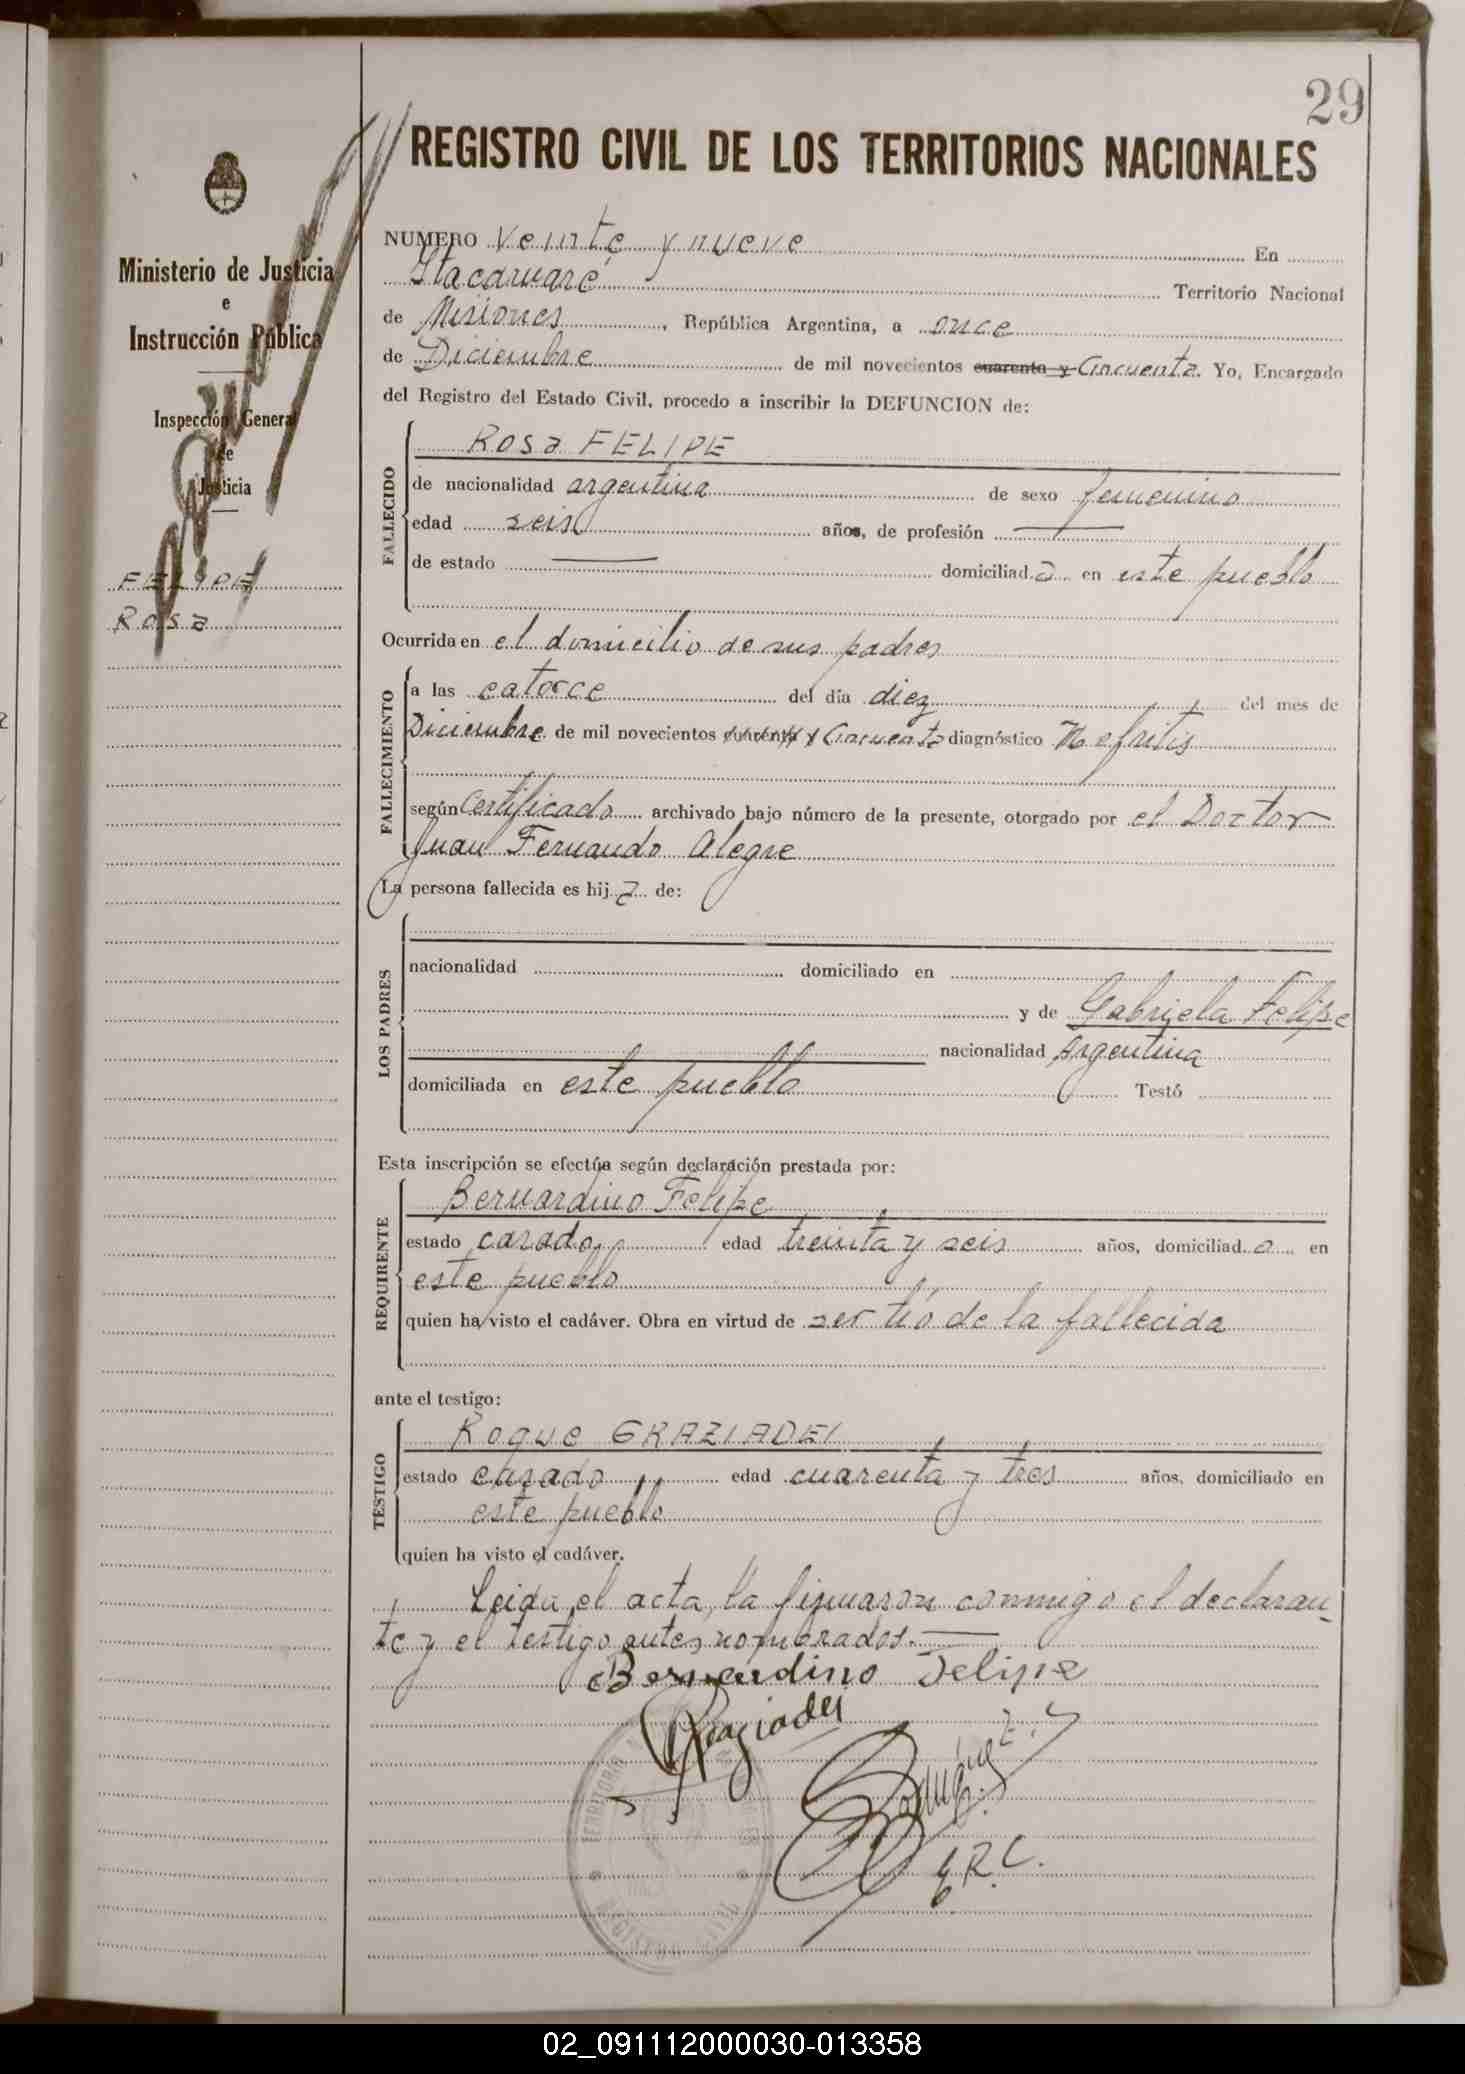 29
REGISTRO CIVIL DE LOS TERRITORIOS NACIONALES
Ministerio de Justicia
e
Instrucción Pública
Inspección General
de
Justicia
FELIPE
Rosa
NUMERO veinte y nueve En
Itacaruaré Territorio Nacional
de Misiones, República Argentina, a once
de Diciembre de mil novecientos cuarenta y Cincuenta. Yo, Encargado
del Registro del Estado Civil, procedo a inscribir la DEFUNCION de:
FALLECIDO
Rosa FELIPE
de nacionalidad argentina de sexo femenino
edad seis años, de profesión
de estado domiciliada en este pueblo
Ocurrida en el domicilio de sus padres
FALLECIMIENTO
a las catorce del día diez del mes de
Diciembre de mil novecientos cuarenta y Cincuenta diagnóstico Nefritis
según Certificado archivado bajo número de la presente, otorgado por el Doctor
Juan Fernando Alegre
La persona fallecida es hija de:
LOS PADRES
nacionalidad domiciliado en
y de Gabriela Felipe
nacionalidad Argentina
domiciliada en este pueblo Testó
Esta inscripción se efectúa según declaración prestada por:
REQUIRENTE
Bernardino Felipe
estado casado edad treinta y seis años, domiciliado en
este pueblo
quien ha visto el cadáver. Obra en virtud de ser tío de la fallecida
ante el testigo:
TESTIGO
Roque GRAZIADEI
estado casado edad cuarenta y tres años, domiciliado en
este pueblo
quien ha visto el cadáver.
Leida el acta, la firmaron conmigo el declaran-
te y el testigo antes nombrados.
Bernardino Felipe
Graziadei
E.R.C.
TERRITORIO
REGISTRO CIVIL
02_091112000030-013358